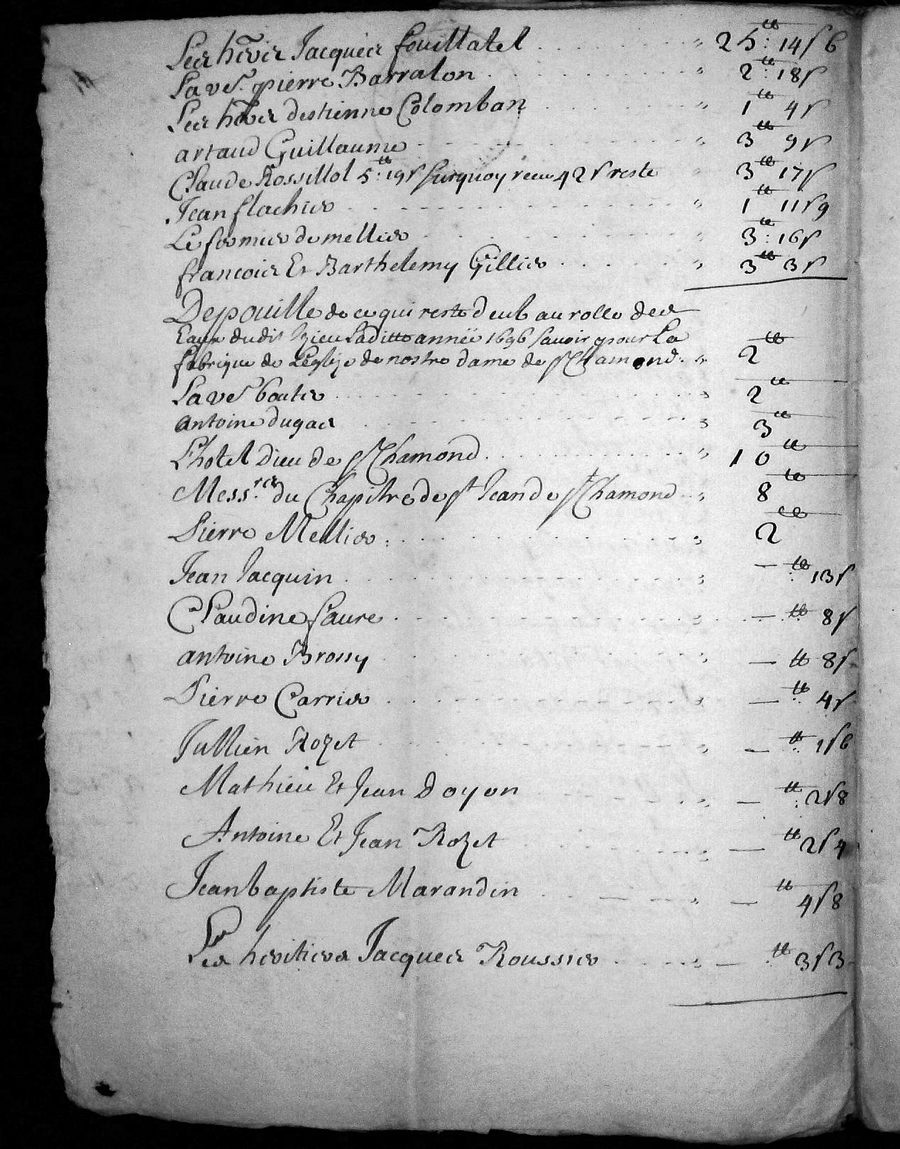 Les hēr̄s Jacques fouillatel . . . . . " 25 ₶: 14 s 6
La veƒ. pierre Barralon . . . . . " 2 ₶: 18 s
Les hēr̄s destienne Colomban . . . . . " 1 ₶ 4 s
artaud Guillaume . . . . . " 3 ₶ 9 s
Claude Rossillol 5 ₶: 19 s surquoy receu 42 s reste " 3 ₶ 17 s
Jean flachier . . . . . " 1 ₶ 11 s 9
Le fermier de mellier . . . . . " 3 ₶: 16 s
francois Et Barthelemy Gillier . . . . . " 3 ₶ 3 s
Depouille de ce qui reste d'eub au rolle des
Eaux dudit Izieu laditte année 1696 sauoir pour La
fabrique de L'eglize de nostre dame de st Chamond . " 2 ₶
La veƒ boutier . . . . . " 2 ₶
antoine dugas . . . . . " 3 ₶
L'hotel Dieu de st Chamond . . . . . " 10 ₶
Mess.rs du Chapitre de st Jean de st Chamond - " 8 ₶
Pierre Mellier . . . . . " 2 ₶
Jean Jacquin . . . . . " — ₶ 13 s
Claudine faure . . . . . " — ₶ 8 s
antoine Brossy . . . . . " — ₶ 8 s
Pierre Carrier . . . . . " — ₶ 4 s
Jullien Rozet . . . . . " — ₶ 1 s 6
Mathieu Et Jean Doyon . . . . . " — ₶ 2 s 8
Antoine Et Jean Rozet . . . . . " — ₶ 2 s 4
Jean baptiste Marandin . . . . . " — ₶ 4 s 8
Les heritiers Jacques Roussier . . . . . " — ₶ 3 s 3